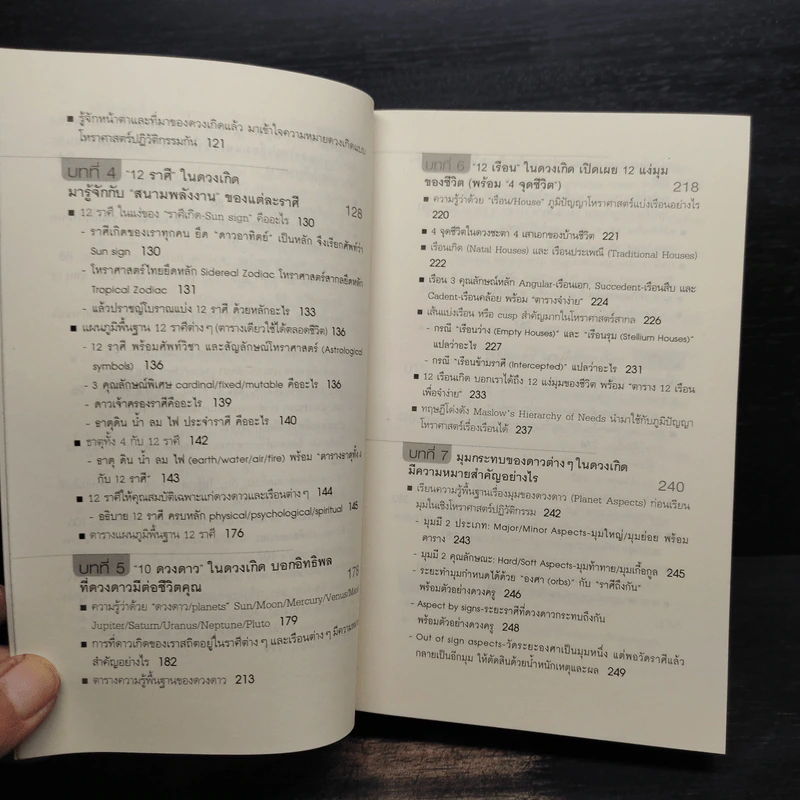 ■ รู้จักหน้าตาและที่มาของดวงเกิดแล้ว มาเข้าใจความหมายดวงเกิดแบบ
โหราศาสตร์ปฏิวัติกรรมกัน 121
บทที่ 4 "12 ราศี" ในดวงเกิด
มารู้จักกับ "สนามพลังงาน" ของแต่ละราศี 128
■ 12 ราศี ในแง่ของ "ราศีเกิด-Sun sign" คืออะไร 130
- ราศีเกิดของเราทุกคน ยึด "ดาวอาทิตย์" เป็นหลัก จึงเรียกศัพท์ว่า
Sun sign 130
- โหราศาสตร์ไทยยึดหลัก Sidereal Zodiac โหราศาสตร์สากลยึดหลัก
Tropical Zodiac 131
- แล้วปราชญ์โบราณแบ่ง 12 ราศี ด้วยหลักอะไร 133
■ แผนภูมิพื้นฐาน 12 ราศีต่างๆ (ตารางเดียวใช้ได้ตลอดชีวิต) 136
- 12 ราศี พร้อมศัพท์วิชา และสัญลักษณ์โหราศาสตร์ (Astrological
symbols) 136
- 3 คุณลักษณ์พิเศษ cardinal/fixed/mutable คืออะไร 136
- ดาวเจ้าครองราศีคืออะไร 139
- ธาตุดิน น้ำ ลม ไฟ ประจำราศี คืออะไร 140
■ ธาตุทั้ง 4 กับ 12 ราศี 142
- ธาตุ ดิน น้ำ ลม ไฟ (earth/water/air/fire) พร้อม "ตารางธาตุทั้ง 4
กับ 12 ราศี" 143
■ 12 ราศีให้คุณสมบัติเฉพาะแก่ดวงดาวและเรือนต่างๆ 144
- อธิบาย 12 ราศี ครบหลัก physical/psychological/spiritual 145
■ ตารางแผนภูมิพื้นฐาน 12 ราศี 176
บทที่ 5 "10 ดวงดาว" ในดวงเกิด บอกอิทธิพล
ที่ดวงดาวมีต่อชีวิตคุณ 178
■ ความรู้ว่าด้วย "ดวงดาว/planets" Sun/Moon/Mercury/Venus/Mars/
Jupiter/Saturn/Uranus/Neptune/Pluto 179
■ การที่ดาวเกิดของเราสถิตอยู่ในราศีต่างๆ และเรือนต่างๆ มีความหมาย
สำคัญอย่างไร 182
■ ตารางความรู้พื้นฐานของดวงดาว 213
บทที่ 6 "12 เรือน" ในดวงเกิด เปิดเผย 12 แง่มุม
ของชีวิต (พร้อม "4 จุดชีวิต") 218
■ ความรู้ว่าด้วย "เรือน/House" ภูมิปัญญาโหราศาสตร์แบ่งเรือนอย่างไร
220
■ 4 จุดชีวิตในดวงชะตา 4 เสาเอกของบ้านชีวิต 221
■ เรือนเกิด (Natal Houses) และ เรือนประเพณี (Traditional Houses)
222
■ เรือน 3 คุณลักษณ์หลัก Angular-เรือนเอก, Succedent-เรือนสืบ และ
Cadent-เรือนคล้อย พร้อม "ตารางจำง่าย" 224
■ เส้นแบ่งเรือน หรือ cusp สำคัญมากในโหราศาสตร์สากล 226
- กรณี "เรือนว่าง (Empty Houses)" และ "เรือนรุม (Stellium Houses)"
แปลว่าอะไร 227
- กรณี "เรือนข้ามราศี (Intercepted)" แปลว่าอะไร 231
■ 12 เรือนเกิด บอกเราได้ถึง 12 แง่มุมของชีวิต พร้อม "ตาราง 12 เรือน
เพื่อจำง่าย" 233
■ ทฤษฎีโด่งดัง Maslow's Hierarchy of Needs นำมาใช้กับภูมิปัญญา
โหราศาสตร์เรื่องเรือนได้ 237
บทที่ 7 มุมกระทบของดาวต่างๆ ในดวงเกิด
มีความหมายสำคัญอย่างไร 240
■ เรียนความรู้พื้นฐานเรื่องมุมของดวงดาว (Planet Aspects) ก่อนเรียน
มุมในเชิงโหราศาสตร์ปฏิวัติกรรม 242
- มุมมี 2 ประเภท: Major/Minor Aspects-มุมใหญ่/มุมย่อย พร้อม
ตาราง 243
- มุมมี 2 คุณลักษณะ: Hard/Soft Aspects-มุมท้าทาย/มุมเกื้อกูล 245
- ระยะทำมุมกำหนดได้ด้วย "องศา (orbs)" กับ "ราศีถึงกัน"
พร้อมตัวอย่างดวงครู 246
- Aspect by signs-ระยะราศีที่ดวงดาวกระทบถึงกัน
พร้อมตัวอย่างดวงครู 248
- Out of sign aspects-วัดระยะองศาเป็นมุมหนึ่ง แต่พอวัดราศีแล้ว
กลายเป็นอีกมุม ให้ตัดสินด้วยน้ำหนักเหตุและผล 249